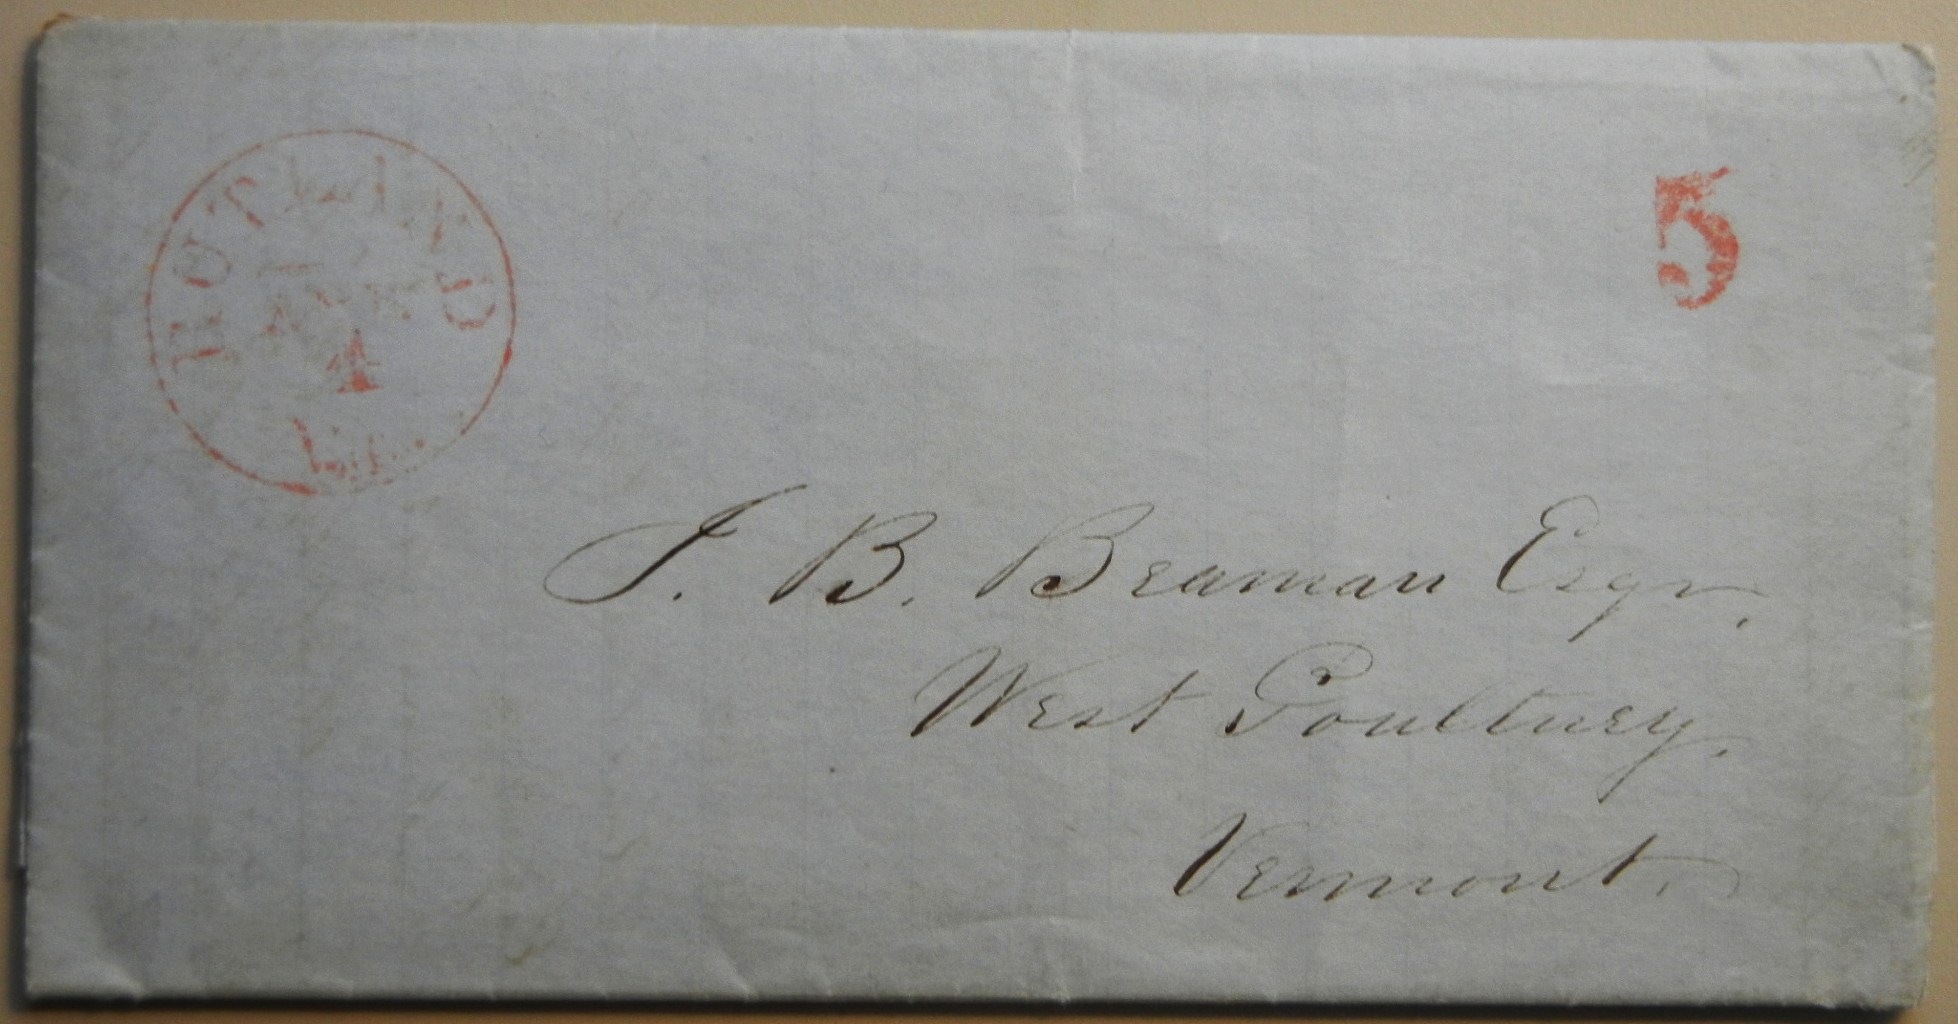 RUTLAND
4
5
J. B. Beaman Esqr.
West Poultney.
Vermont.